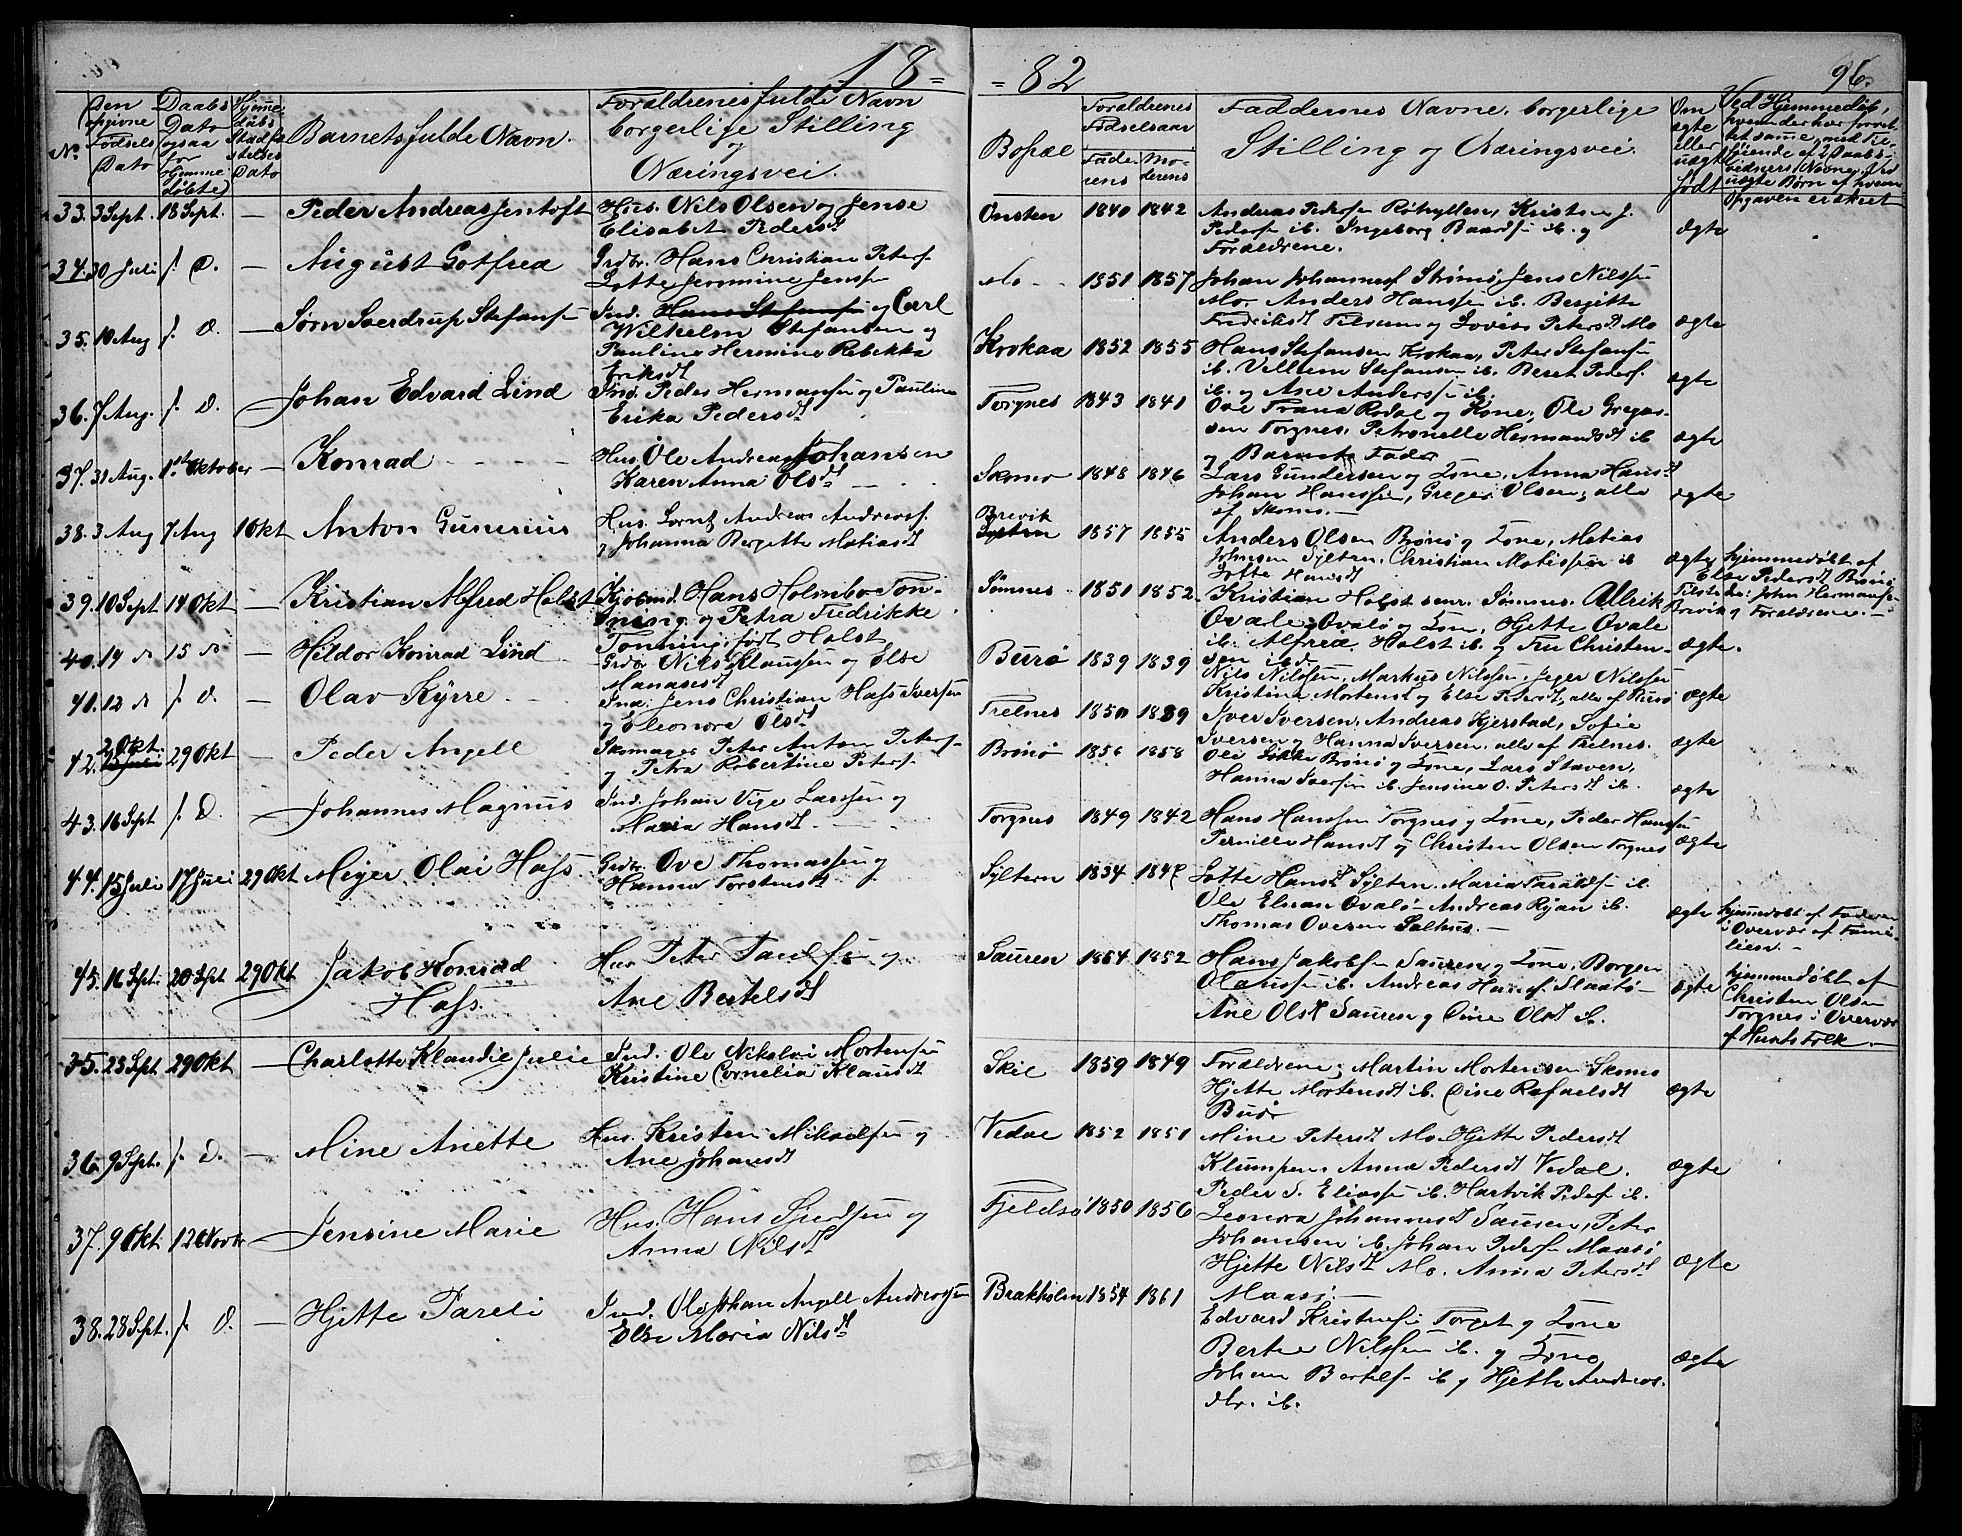 18 = = 82
96.
No.
Den opgivne Fødsels Dato
Daabs Dato ogsaa for hjemme døbte)
Hjemme daabs Stadfæstelses Dato
Barnets fulde Navn.
Forældrenes fulde Navn borgerlige Stilling og Næringsvei.
Bopæl
Forældrenes Fødselsaar
Faderens
Moderens
Faddernes Navne, borgerlige Stilling og Næringsvei.
Om ægte eller uægte født
33. 3 Sept. 18 Sept. — Peder Andreas Jentoft
Hus. Nils Olsen og Jense
Elisabet Pedersdt
Onsten 1840 1842
Andreas Pedersen
Pedersen ib. Ingeborg ib. og
Forældrene.
ægte
34. 30 Juli s. D. — August Gotfred
Grdbr. Hans Christian Peters.
Lotte Jensen
Mo 1851 1857
Johan Johannes. Strømø, Jens Nilssen
Mo. Anders Hanssen ib. Bergitte
Fredriksdt Tilrum og Lovise Petersdt Mo
ægte
35. 10 Aug s. D. — Sørn Sverdrup Stefansen
Ind. Hans Stefansen og Carl
Wilhelm Stefansen og
Pauline Hermine Rebekka
Eriksdt
Krokaa 1852 1855
Hans Stefansen Krokaa, Peter Stefansen
ib. Vellum Stefansen ib. Beret Peders.
ib. og Ane Anderssen ib.
ægte
36. 7 Aug. s. D. — Johan Edvard Lind
Ind. Peder Hermansen og Pauline
Erika Pedersdt
Torgnes 1843 1841
Ove Trana Rodal og Kone, Ole Gregussen Torgnes, Petronelle Hermandsdt ib
og Barnets Fader
ægte
37. 31 Aug. 1st Oktober — Konrad
Hus. Ole Andreas Johansen
Karen Anna Olsdt
Skomo 1848 1846
Lars Gundersen og Kone, Anna Hansdt
Johan Hanssen, Greger Olsen, alle
af Skomo.
ægte
38. 3 Aug 7 Aug 1 Okt Anton Gunerius
Hus. Lornts Andreas Andreas.
og Johanna Bergette Matiasdt
Brevik
Syltern 1857 1855
Anders Olsen Brønø og Kone, Matias
Johnsen Syltern, Christian Matissen ib
Lotte Hansdt
ægte
hjemmedøbt af
Else Pedersdt Brønø
Tilstede: John Hermansen
Brevik og Forældrene.
39. 10 Sept 14 Okt — Kristian Alfred Holst
Kjøbmd. Hans Holmbo Tonning og Petra Fredrikke
Tonning, født Holst
Sømnes 1851 1852
Kristian Holst senr. Sømnes. Ulrik
Qvale, Qvalø og Kone, Hjette Qvale
ib. Alfred Holst ib. og Fru Christensen ibd.
ægte.
40. 14 15 — Hildor Konrad Lind
Grdbr Nils Klaussen og Else
Manasesdt
Burø 1839 1839
Nils Nilssen, Markus Nilssen, Jeger Nilssen
Kristina Mortensdt og Else Petersdt, alle af Burø
ægte
41. 12 s. D. — Olav Kyrre
Ind. Jens Christian Hass Iversen
og Eleonora Olsdt
Trelnes 1850 1839
Iver Iversen, Andreas Kjerstad, Sofie
Iversen og Hanna Iversen, alle af Trelnes.
ægte
42. 2 Okt. 25 Juli 29 Okt — Peder Angell
Skomager Peter Anton Peters.
og Petra Robertine Peters.
Brønø 1856 1858
Ole Lokke Brønø og Kone, Lars Staven,
Hanna Iversen ib. Jensine O. Petersdt ib.
ægte
43. 16 Sept s. D. — Johannes Magnus
Ind. Johan Vige Larssen og
Maria Hansdt
Torgnes 1849 1842
Hans Hanssen Torgnes og Kone, Peder Hanssen
Pernille Hansdt og Christen Olsen Torgnes
ægte
44. 15 Juli 17 Juli 29 Okt Meyer Olai Hass
Grdbr. Ove Thomassen og
Hanna Torstensdt
Syltern 1834 1847
Lotte Hansdt Syltern. Maria ib.
Ole Elnan Qvalø. Andreas Ryan ib.
Thomas Oversen Salhus.
ægte
hjemmedøbt af Faderen
i Overvær af Familien.
45. 16 Sept. 20 Sept 29 Okt Jakob Konrad
Hass
Hus Peter Paulsen og
Ane Bertelsdt
Sauren 1854 1852
Hans Jakobsen Sauren og Kone, Borger
Olaussen ib. Andreas Slaatø
Ane Olsdt Sauren og Dine Olsdt ib.
ægte
hjemmedøbt af
Christen Olsen
Torgnes i Overvær
af Husets Folk.
35. 23 Sept. 29 Okt — Charlotte Klandie Julie
Ind. Ole Nikolai Mortensen
Kristine Cornelia Klausdt
Skil 1859 1849
Forældrene, Martin Mortensen Skomo
Hjette Mortensdt ib. Dine Rafaelsdt
Burø
ægte
36. 9 Sept. s. D. — Mine Anette
Hus. Kristen Mikaelsen og
Ane Johansdt
Vedal 1852 1851
Mine Petersdt Mo. Hjette Pedersdt
Klumpen, Anna Pedersdt Vedal.
Peder S. Eliassen ib. Hartvik Peders. ib.
ægte
37. 9 Okt 12 Novbr — Jensine Marie
Hus. Hans Sjurdsen og
Anna Nilsdt
Fjeldsø 1850 1856
Leonora Johannesdt Sausen, Peter
Johansen ib. Johan Peders. Maasø
Hjette Nilsdt Mo. Anna Petersdt
Maasø.
ægte
38. 28 Sept. s. D. — Hjette Pareli
Ind. Ole Johan Angell Andreassen
Else Maria Nilsdt
Brakholm 1854 1861
Edvard Kristensen Torget og Kone
Berte Nilssen ib. og Kone
Johan Bertels. ib. og Hjette Andreasdtr. ib.
ægte